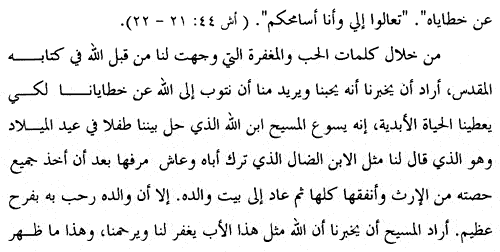 عن خطاياه". "تعالوا إلي وأنا أسامحكم". ( أش ٤٤: ٢١ - ٢٢).
من خلال كلمات الحب والمغفرة التي وجهت لنا من قبل الله في كتابه
المقدس، أراد أن يخبرنا أنه يحبنا ويريد منا أن نتوب إلى الله عن خطايانا لكي
يعطينا الحياة الأبدية، إنه يسوع المسيح ابن الله الذي حل بيننا طفلا في عيد الميلاد
وهو الذي قال لنا مثل الابن الضال الذي ترك أباه وعاش مرفها بعد أن أخذ جميع
حصته من الإرث وأنفقها كلها ثم عاد إلى بيت والده. إلا أن والده رحب به بفرح
عظيم. أراد المسيح أن يخبرنا أن الله مثل هذا الأب يغفر لنا ويرحمنا، وهذا ما ظهر